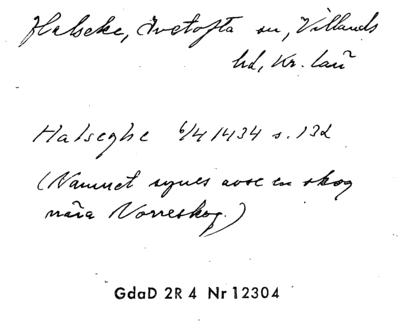 Halseke, Ivetofta sn, Villands
hd, Kr. län
Halseghe 6/4 1434 s. 132
(Namnet synes avse en skog
nära Norreskog.)
GdaD 2R 4 Nr 12304